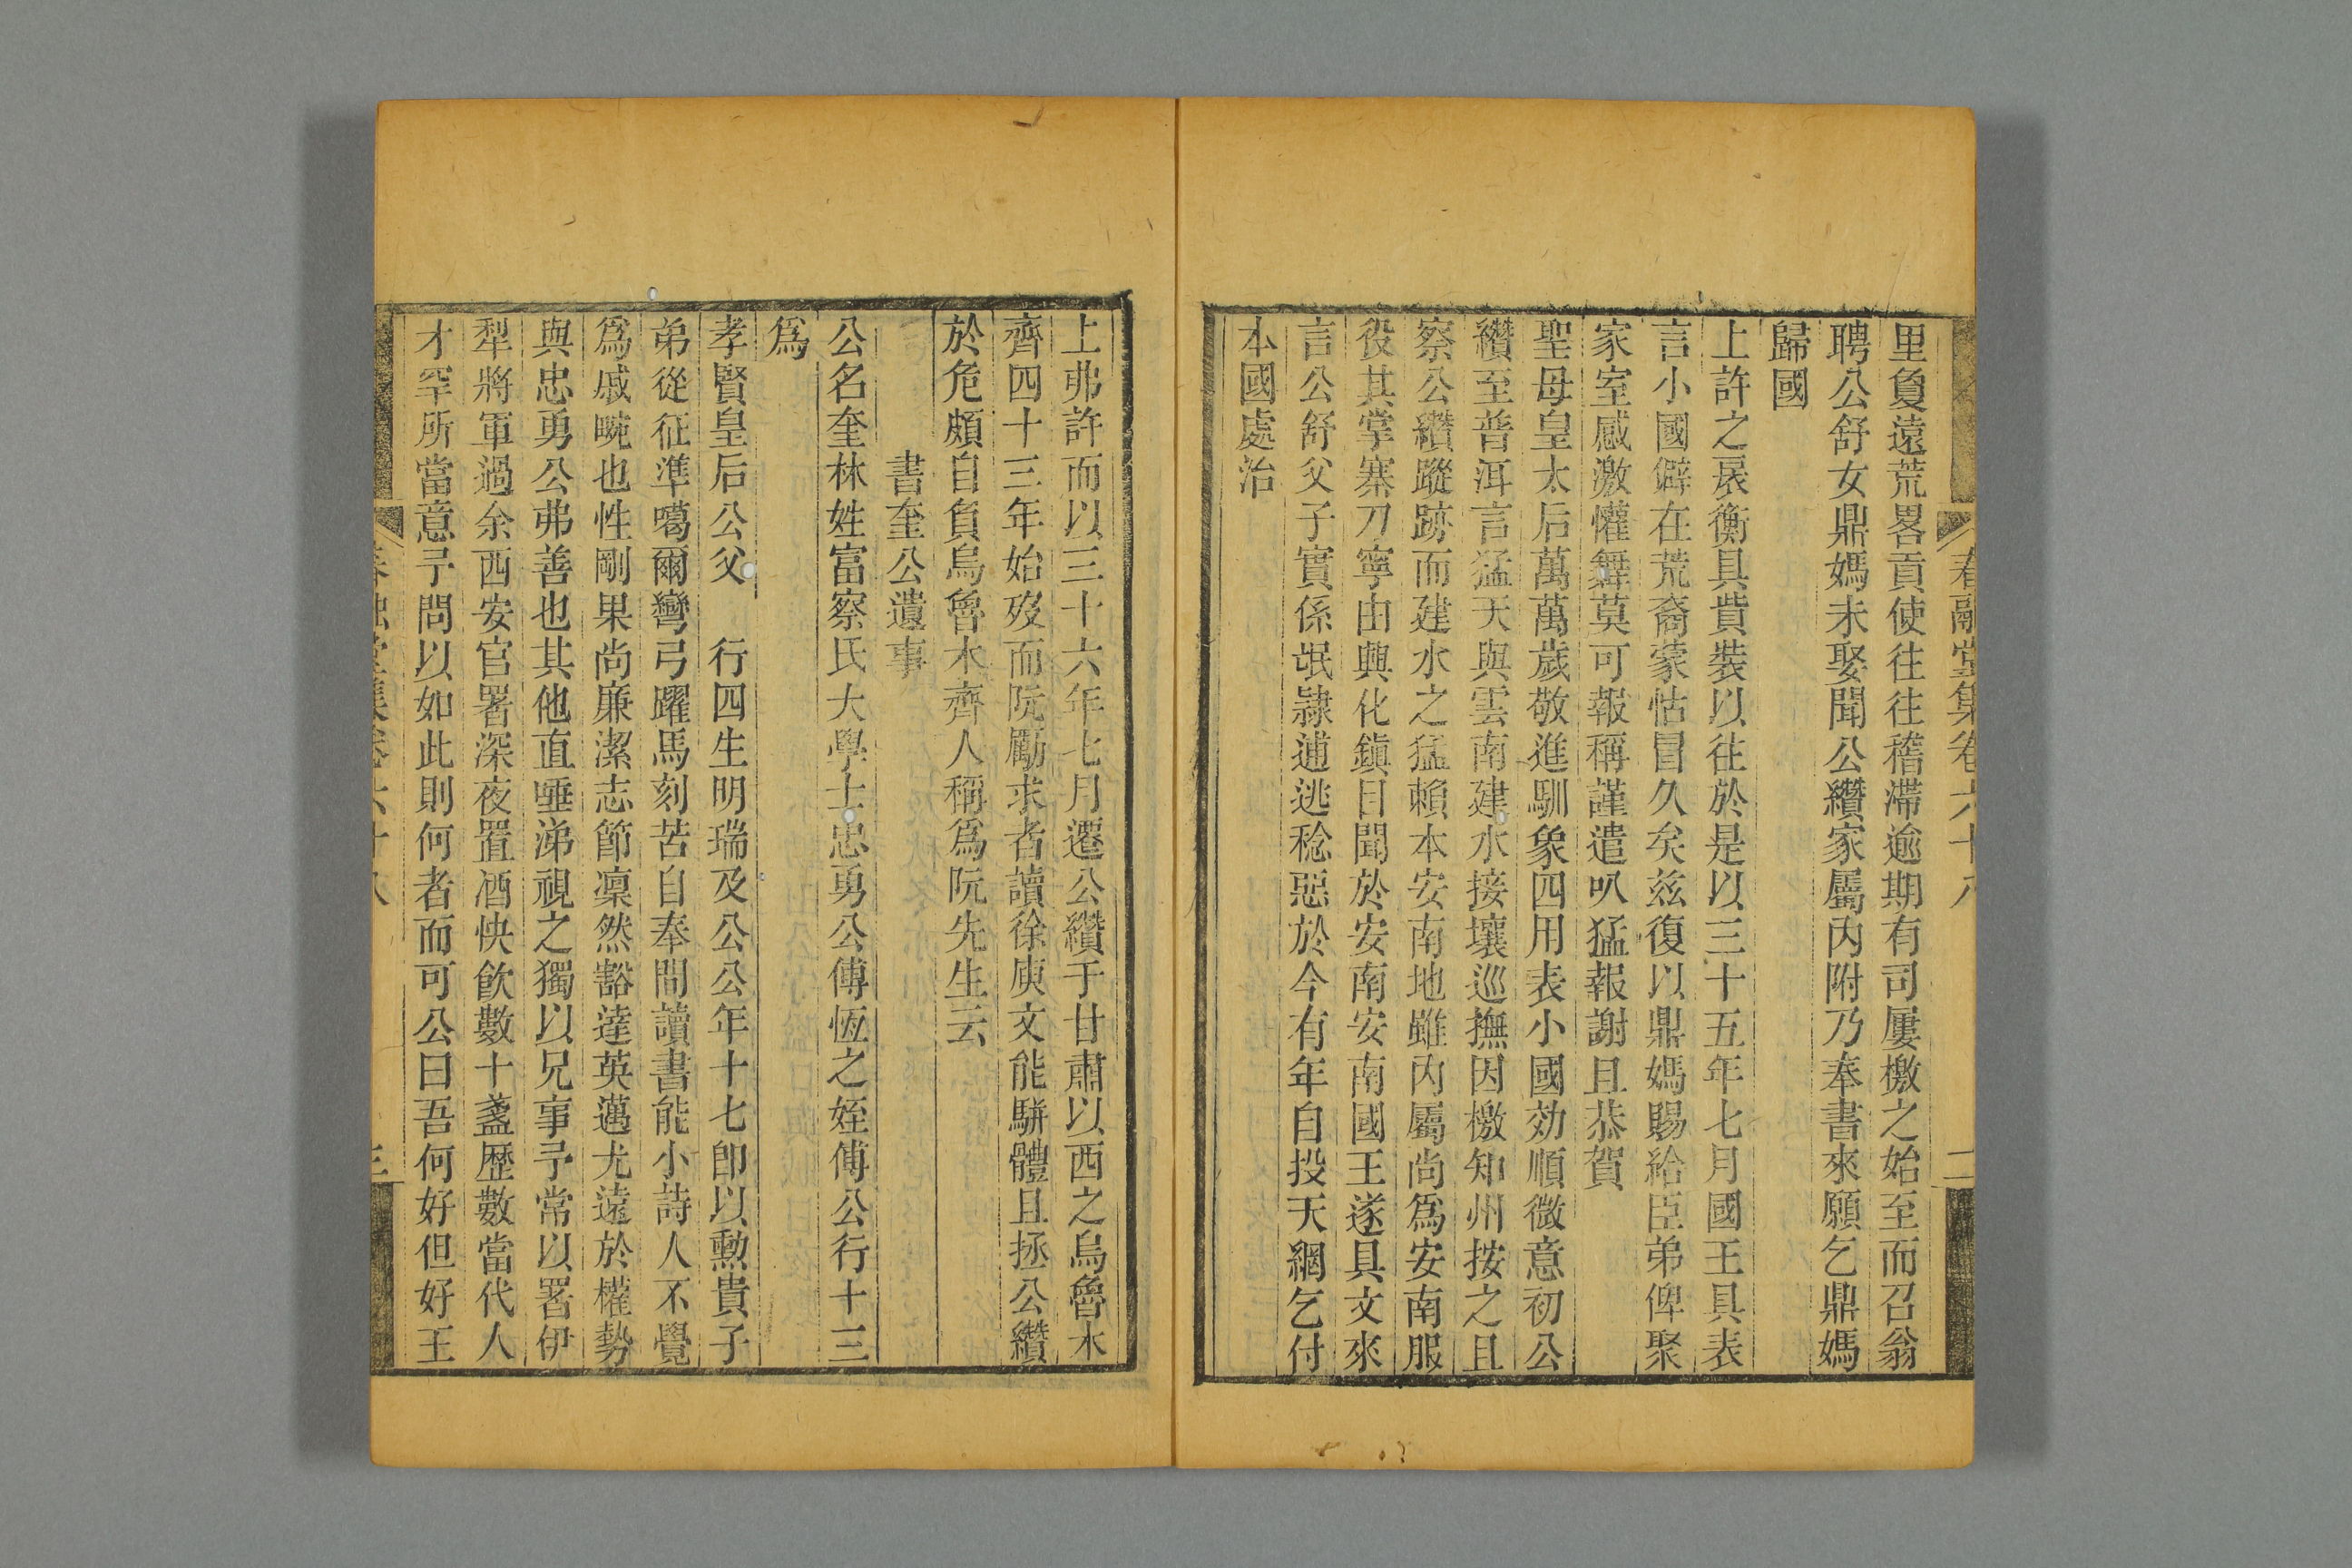 春融堂集卷六十八
二
里負遠荒畧貢使往往稽滯逾期有司屢檄之始至而召翁
聘公舒女鼎媽未娶聞公纘家屬內附乃奉書來願乞鼎媽
歸國
上許之扆衡具貲裝以往於是以三十五年七月國王具表
言小國僻在荒裔蒙怙冒久矣兹復以鼎媽賜給臣弟俾聚
家室感激懽舞莫可報稱謹遣叭猛報謝且恭賀
聖母皇太后萬萬歲敬進馴象四用表小國効順微意初公
纘至普洱言猛天與雲南建水接壤巡撫因檄知州按之且
察公纘蹤跡而建水之猛賴本安南地雖內屬尚為安南服
役其掌寨刀寧由興化鎮目聞於安南安南國王遂具文來
言公舒父子實係氓隷逋逃稔惡於今有年自投天網乞付
本國處治
上弗許而以三十六年七月遷公纘于甘肅以西之烏魯木
齊四十三年始歿而阮勵求者讀徐庾文能駢體且拯公纘
於危頗自負烏魯木齊人稱為阮先生云
書奎公遺事
公名奎林姓富察氏大學士忠勇公傅恆之姪傅公行十三
為
孝賢皇后公父　行四生明瑞及公公年十七即以勲貴子
弟從征準噶爾彎弓躍馬刻苦自奉間讀書能小詩人不覺
為戚畹也性剛果尚廉潔志節凜然豁達英邁尤遠於權勢
與忠勇公弗善也其他直唾涕視之獨以兄事予常以署伊
犁將軍過余西安官署深夜置酒快飲數十盞歷數當代人
才罕所當意予問以如此則何者而可公曰吾何好但好王
春融堂集卷六十八
三